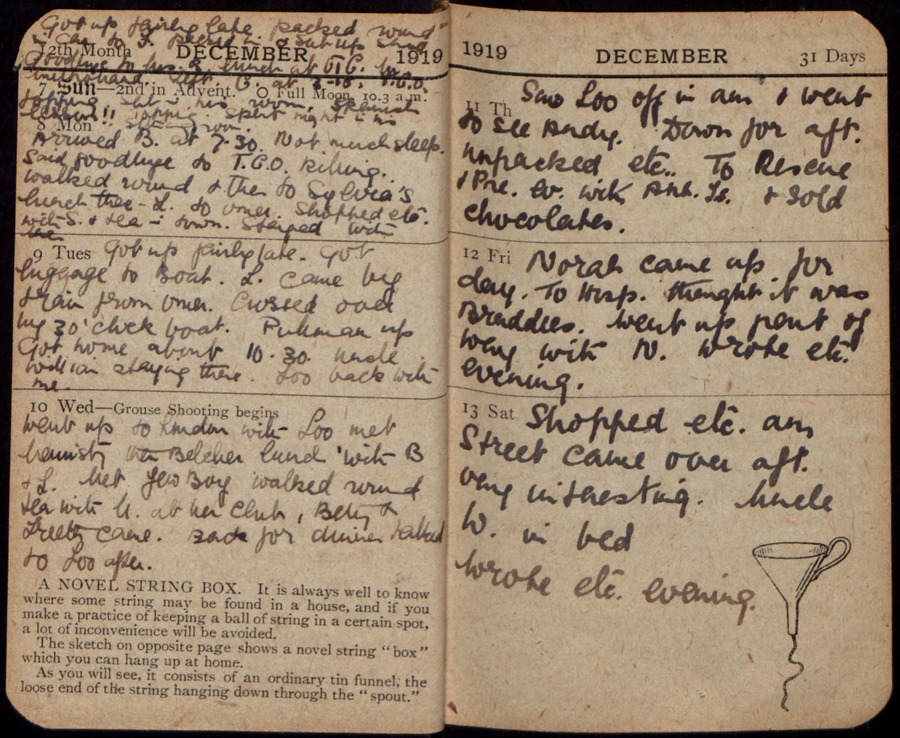 Got up fairly late packed round
12th Month DECEMBER 1919
Goodbye to lunch at
7 Sun—2nd in Advent. O Full Moon, 10.3 a.m.
topping sat in his room, Spanish
lessons!! Topping. Spent night in his
8 Mon room
Arrived B. at 7.30. Not much sleep.
Said goodbye to T.C.O. killing.
walked round & then to Sylvia's
lunch there - L. to Shopped etc.
with S. & tea in town. Stayed with
9 Tues Got up fairly late. Got
luggage to Boat. L. came by
train from Crossed over
by 3 o'clock boat. Pullman up
Got home about 10.30. Uncle
William staying there. Loo back with
me.
10 Wed—Grouse Shooting begins
Went up to London with Loo met
Belcher lund with B
& L. Met Jew Boy walked round
tea with U. at her Club, Betty &
came. Back for dinner talked
to Loo after.
A NOVEL STRING BOX. It is always well to know
where some string may be found in a house, and if you
make a practice of keeping a ball of string in a certain spot,
a lot of inconvenience will be avoided.
The sketch on opposite page shows a novel string "box"
which you can hang up at home.
As you will see, it consists of an ordinary tin funnel, the
loose end of the string hanging down through the "spout."
1919 DECEMBER 31 Days
11 Th Saw Loo off in am & went
to see Andy. Down for aft.
unpacked etc. To Rescue
& Pre. Ev. with & sold
chocolates.
12 Fri Norah came up for
day. To Hosp. thought it was
Braddles. Went up front of
way with N. Wrote etc.
evening.
13 Sat Shopped etc. am
Street came over aft.
very interesting. Uncle
W. in bed
Wrote etc. evening.